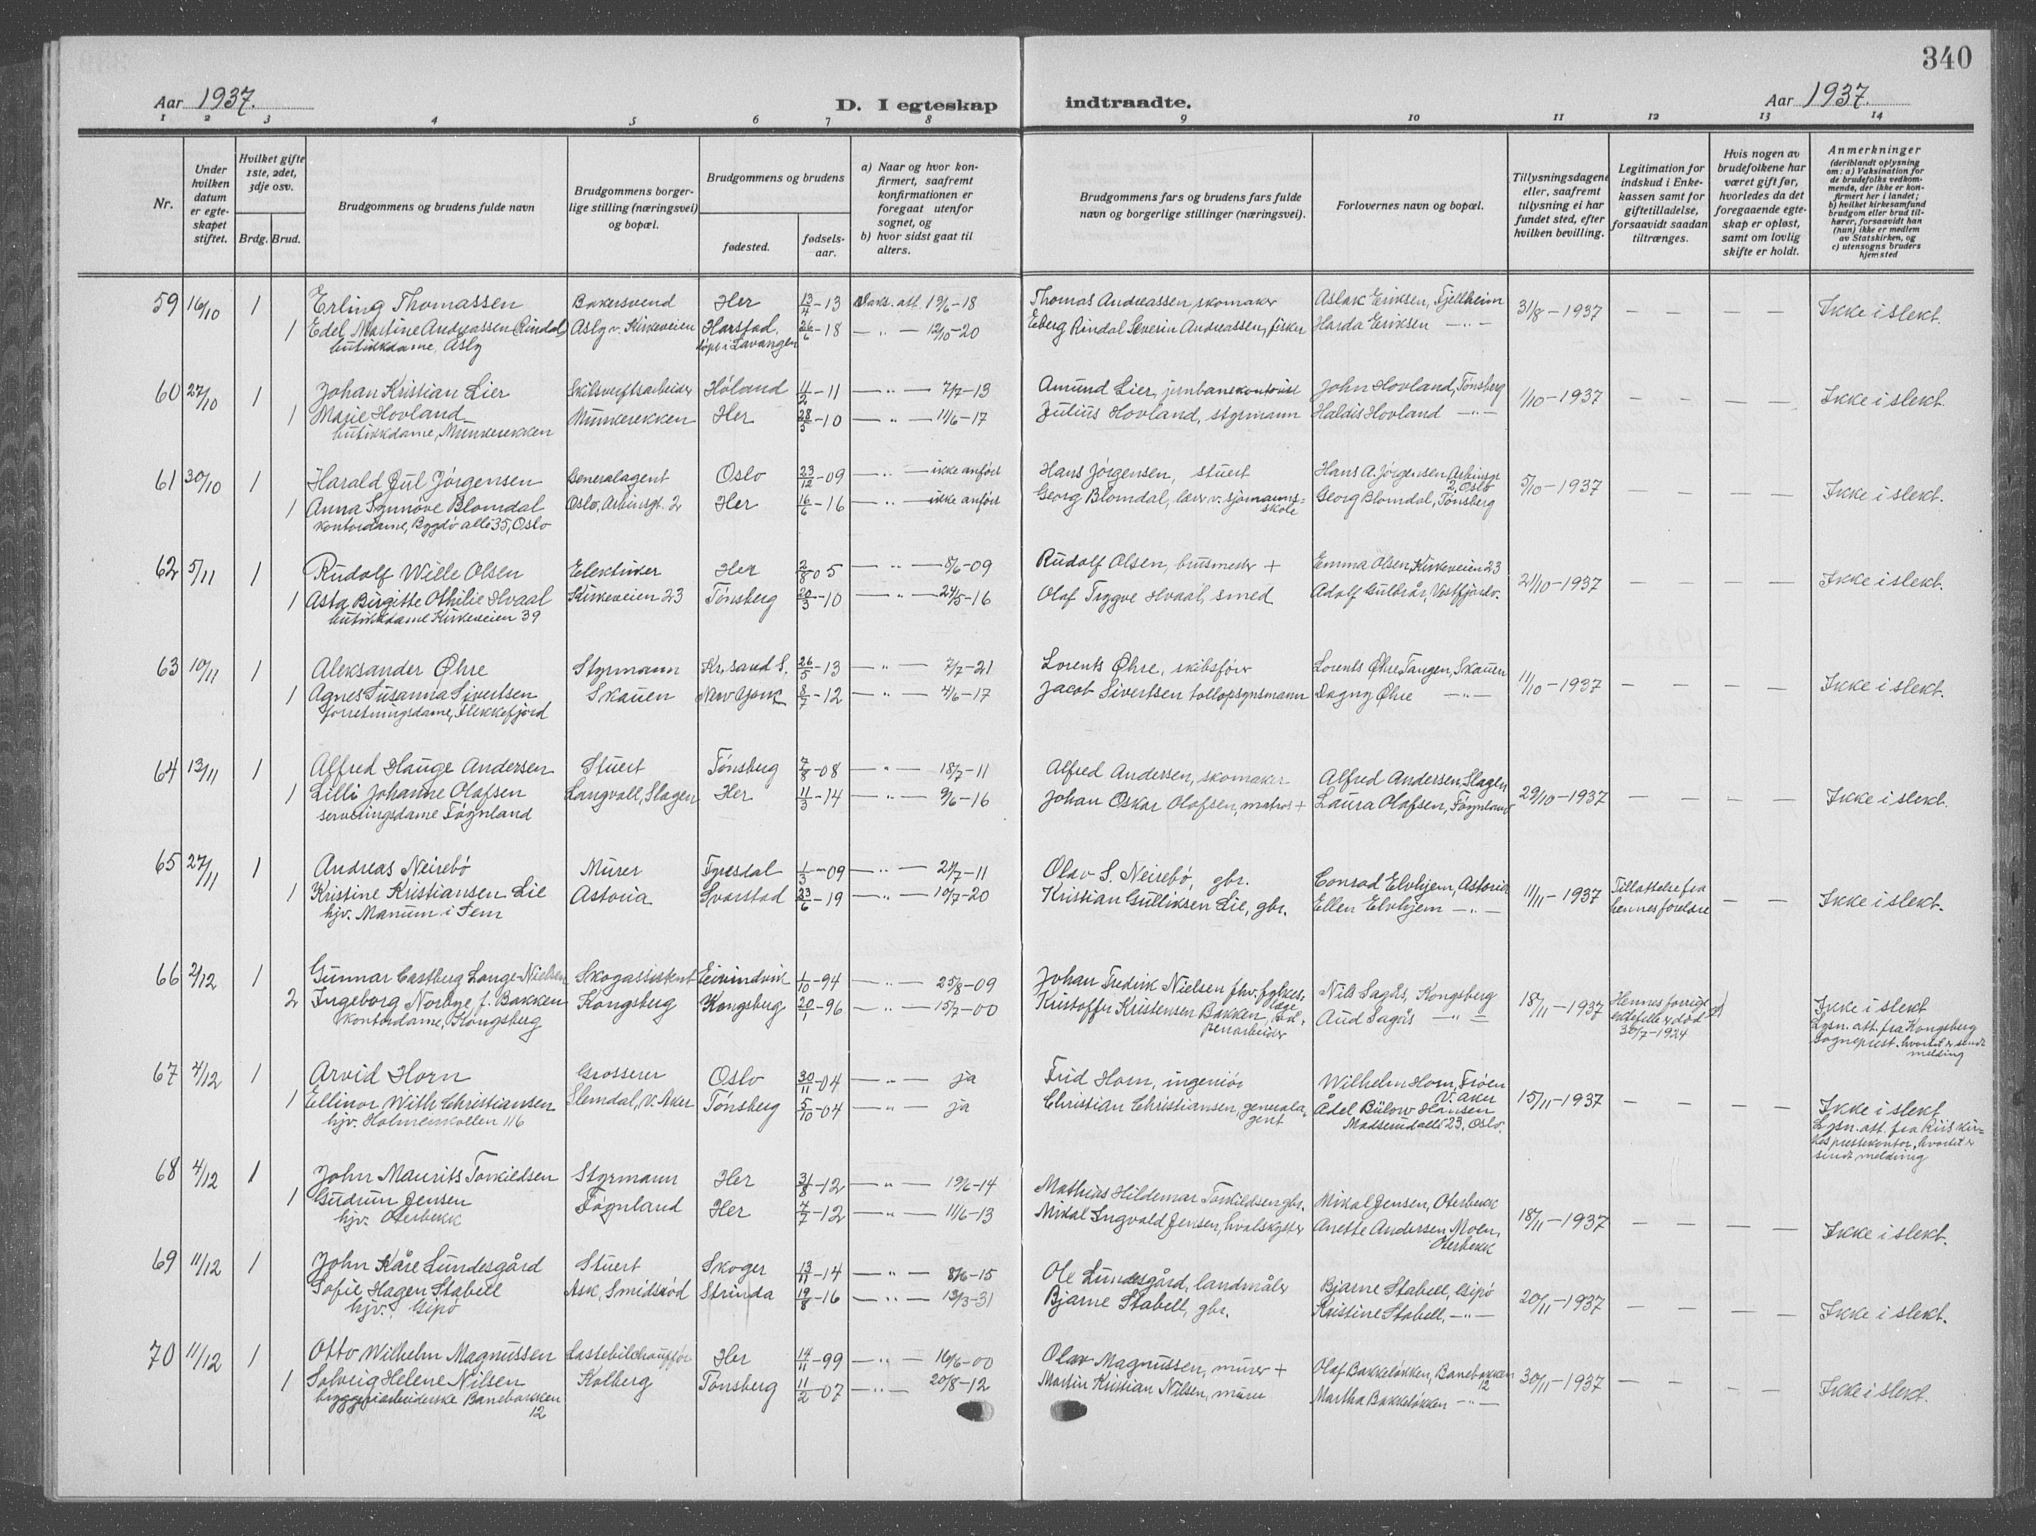 340
Aar 1937. D. I egteskap indtraadte. Aar 1937.
1 2 3 4 5 6 7 8 9 10 11 12 13 14
Nr.
Under hvilken datum er egteskapet stiftet.
Hvilket gifte 1ste, 2det, 3dje osv.
Brdg. Brud.
Brudgommens og brudens fulde navn
Brudgommens borgerlige stilling (næringsvei) og bopæl.
Brudgommens og brudens
fødested. fødselsaar.
a) Naar og hvor konfirmert, saafremt konfirmationen er foregaat utenfor sognet, og
b) hvor sidst gaat til alters.
Brudgommens fars og brudens fars fulde navn og borgerlige stillinger (næringsvei).
Forlovernes navn og bopæl.
Tillysningsdagene eller, saafremt tillysning ei har fundet sted, efter hvilken bevilling.
Legitimation for indskud i Enkekassen samt for giftetilladelse, forsaavidt saadan tiltrænges.
Hvis nogen av brudefolkene har været gift før, hvorledes da det foregaaende egteskap er opløst, samt om lovlig skifte er holdt.
Anmerkninger
(deriblandt oplysning om: a) Vaksination for de brudefolks vedkommende, der ikke er konfirmert her i landet; b) hvilket kirkesamfund brudgom eller brud tilhører, forsaavidt han (hun) ikke er medlem av Statskirken, og c) utensogns bruders hjemsted
59 16/10 1 Erling Thomassen Bakersvend Her 13/4 – 13 Vaks. att. 19/6 – 18 Thomas Andreassen, skomaker Aslak Eriksen, Fjellheim 31/8 – 1937 – – Ikke i slekt.
1 Edel Martine Andreassen (Rindal) Aslg v. Kirkeveien Harstad, 26/6 – 18 — " — 12/10 – 20 Eberg Rindal Severin Andreassen, fisker Harda Eriksen — " —
butikkdame, Aslg døpt i Lavangen
60 27/10 1 Johan Kristian Lier Skibsverftsarbeider Høland 11/2 – 11 — " — 7/7 – 13 Amund Lier, jernbanekontorist John Hovland, Tønsberg 1/10 – 1937 – – Ikke i slekt.
1 Marie Hovland Munkerekken Her 28/5 – 10 — " — 11/6 – 17 Julius Hovland, styrmann Haldis Hovland — " —
butikkdame, Munkerekken
61 30/10 1 Harald Jul Jørgensen Generalagent Oslo 23/12 – 09 — " — ikke anført Hans Jørgensen, stuert Hans A. Jørgensen, Arbinsgt 2, Oslo 5/10 – 1937 – – Ikke i slekt.
1 Anna Synnøve Blomdal Oslo, Arbinsgt. 2 Her 16/6 – 16 — " — ikke anført Georg Blomdal, lær. v. sjømannsskole Georg Blomdal, Tønsberg
kontordame, Bygdø allé 35, Oslo
62 5/11 1 Rudolf Wille Olsen Elektriker Her 2/8 05 — " — 8/6 – 09 Rudolf Olsen, busmeder + Emma Olsen, Kirkeveien 23 21/10 – 1937 – – Ikke i slekt.
1 Asta Birgitte Othilie Hvaal Kirkeveien 23 Tønsberg 20/3 – 10 — " — 24/5 – 16 Olaf Trygve Hvaal, smed Adolf Guldrår, Vestfjordv.
butikkdame Kirkeveien 39
63 10/11 1 Aleksander Øhre Styrmann Kr. sand S. 26/5 – 13 — " — 7/7 – 21 Lorents Øhre, skibsfører Lorents Øhre Tangen, Skauen 11/10 – 1937 – – – Ikke i slekt.
1 Agnes Susanna Sivertsen Skauen New York 8/7 – 12 — " — 4/6 – 17 Jacob Sivertsen tollopsynsmann Dagny Øhre — " —
forretningsdame, Flekkefjord
64 13/11 1 Alfred Hauge Andersen Stuert Tønsberg 7/8 – 08 — " — 18/7 – 11 Alfred Andersen, skomaker Alfred Andersen, Slagen 29/10 – 1937 – – – Ikke i slekt.
1 Lilli Johanne Olafsen Langvall, Slagen Her 11/3 – 14 — " — 9/6 – 16 Johan Oskar Olafsen, matros + Laura Olafsen, Føgnland
serveringsdame Føgnland
65 27/11 1 Andreas Neirebø Murer Fyresdal 1/3 – 09 — " — 21/7 – 11 Olav S. Neirebø, gbr. Conrad Elvhjem, Astoria 11/11 – 1937 Tillatelse fra hennes foreldre – – Ikke i slekt.
1 Kristine Kristiansen Lie Astoria Svarstad 23/6 – 19 — " — 10/7 – 20 Kristian Gulliksen Lie, gbr. Ellen Elvhjem — " —
hjv. Manum i Sem
66 2/12 1 Gunnar Castberg Lange-Nielsen Skogassistent Eivindvik 1/10 – 94 — " — 25/8 – 09 Johan Fredrik Nielsen fhv. fylkeslege Nils Sagås, Kongsberg 18/11 – 1937 Hennes forrige ektefelle død 30/7 – 1924 Ikke i slekt
2 Ingeborg Norbye f. Bakken Kongsberg Kongsberg 20/1 – 96 — " — 15/7 – 00 Kristoffer Kristensen Bakken, våpenarbeider Aud Sagås — " — Lysn. att. fra Kongsberg
kontordame, Kongsberg sogneprest, hvortil er sendt melding
67 4/12 1 Arvid Horn Grosserer Oslo 30/11 – 04 — " — ja Frid Horn, ingeniør Wilhelm Horn, Frøen V. Aker 15/11 – 1937 – – – Ikke i slekt
1 Ellinor With Christiansen Slemdal, V. Aker Tønsberg 5/10 – 04 — " — ja Christian Christiansen, generalagent Ådel Bülow Hansen Madserud allé 23, Oslo. Lysn. att. fra Ris kirkes prestekontor, hvortil er sendt melding
hjv. Holmenkollen 116
68 4/12 1 John Maurits Torkildsen Styrmann Her 31/8 – 12 — " — 19/6 – 14 Mathias Hildemar Torkildsen gbr. Mikal Jensen, Oterbekk 18/11 – 1937 – – – Ikke i slekt.
1 Gudrun Jensen Føgnland Her 7/7 – 12 — " — 11/6 – 13 Mikal Ingvald Jensen, hvalskytter Anette Andersen Moen, Oterbekk
hjv. Oterbekk
69 11/12 1 John Kåre Lundesgård Stuert Skoger 13/11 – 14 — " — 8/6 – 15 Ole Lundesgård, landmåler Bjarne Stabell, Gipø 20/11 – 1937 – – – Ikke i slekt.
Sofie Hagen Stabell Ask, Smidsrød Strinda 19/8 – 16 — " — 13/3 – 31 Bjarne Stabell, gbr. Kristine Stabell, — " —
hjv. Gipø
70 11/12 1 Otto Wilhelm Magnussen Lastebilchauffør Her 14/11 – 99 — " — 16/6 – 00 Olav Magnussen, murer + Olaf Bakkeløkken, Banebakken 12 30/11 – 1937 – – – Ikke i slekt.
1 Solveig Helene Nilsen Kolberg Tønsberg 11/2 – 07 — " — 20/8 – 12 Martin Kristian Nilsen, murer Martha Bakkeløkken — " —
bryggeriarbeiderske Banebakken 12